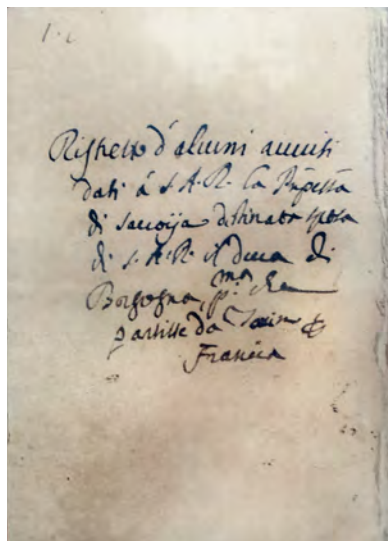 Ristretto d'alcuni auuisi
dati à S.A.R. la Prpessa
di Sauoija destinata sposa
di S.A.R. il duca di
Borgogna, p.ma che
partisse da
Francia